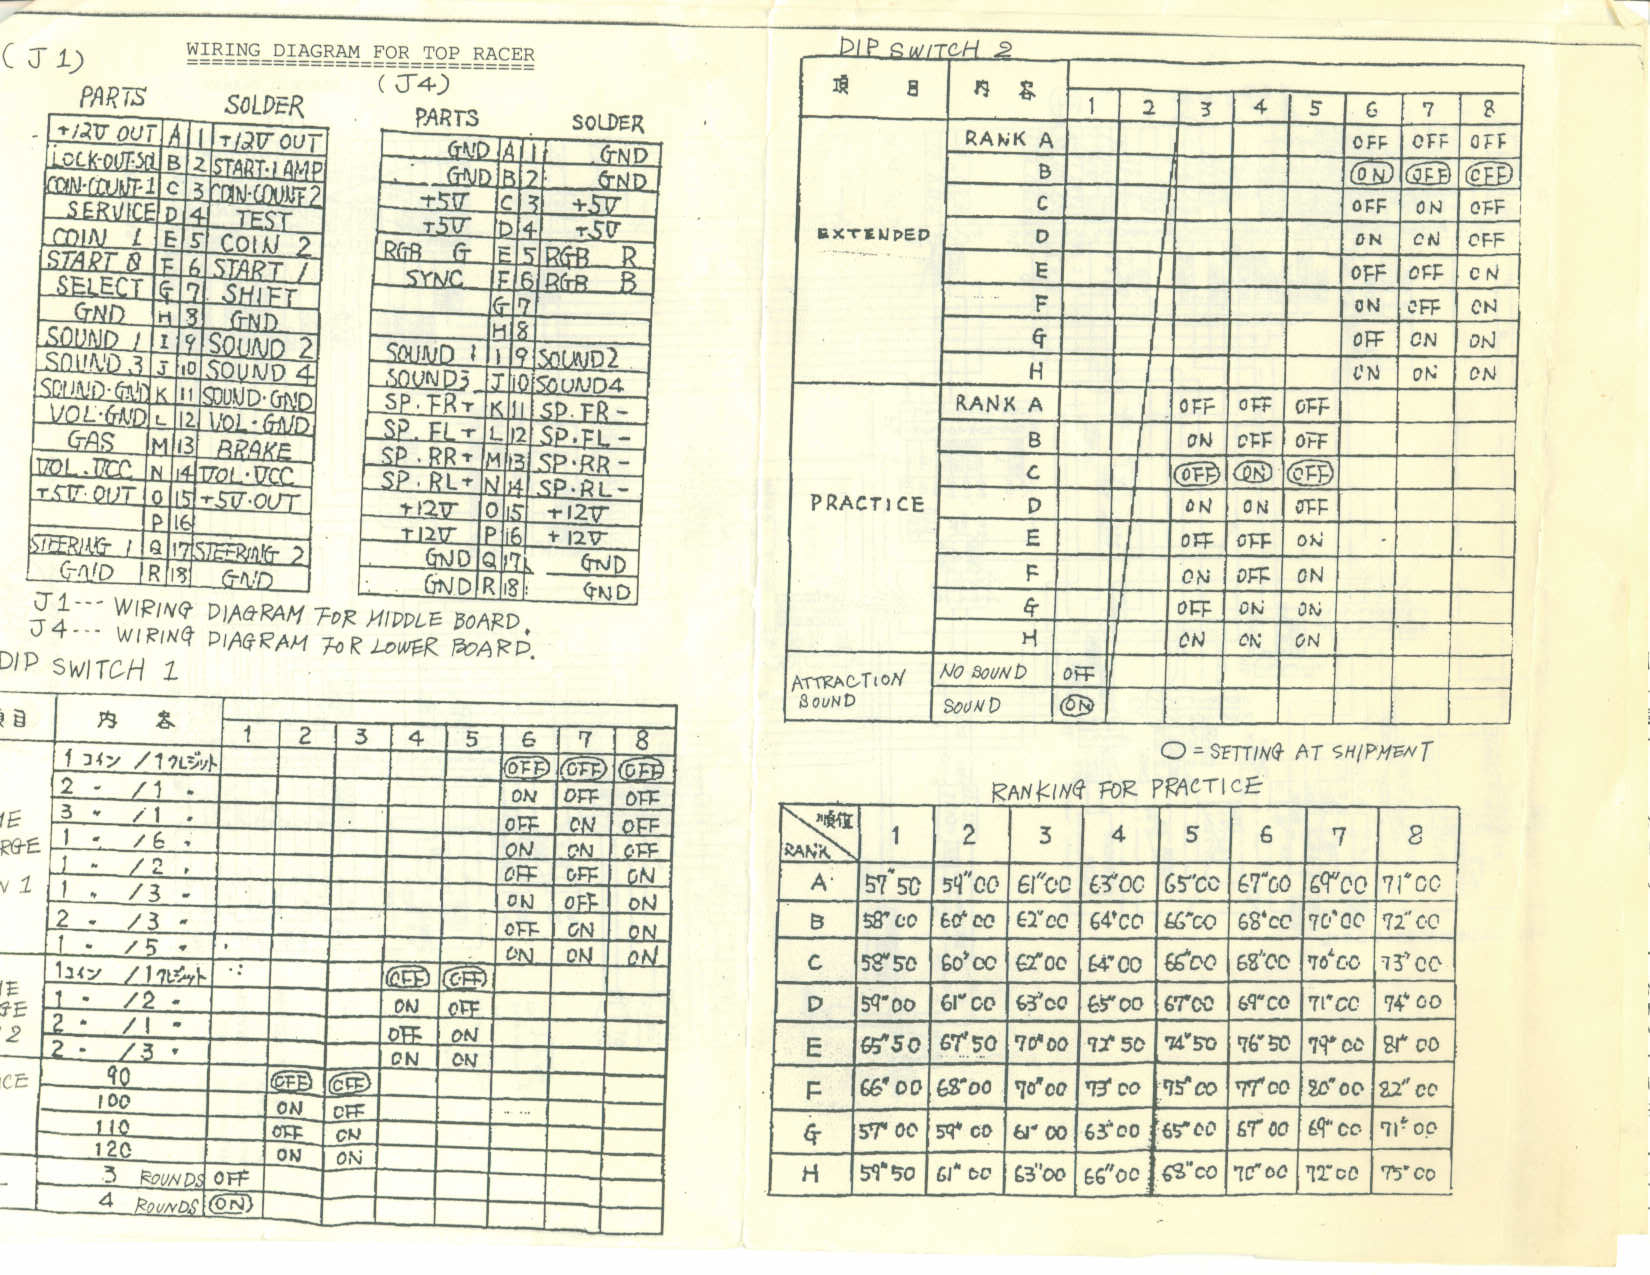 (J1)
WIRING DIAGRAM FOR TOP RACER
(J4)
PARTS SOLDER
+12V OUT A 1 +12V OUT
LOCK-OUT-SOL B 2 START-LAMP
COIN-COUNT-1 C 3 COIN-COUNT-2
SERVICE D 4 TEST
COIN 1 E 5 COIN 2
START 0 F 6 START 1
SELECT G 7 SHIFT
GND H 8 GND
SOUND 1 I 9 SOUND 2
SOUND 3 J 10 SOUND 4
SOUND-GND K 11 SOUND-GND
VOL-GND L 12 VOL-GND
GAS M 13 BRAKE
VOL-VCC N 14 VOL-VCC
+5V-OUT O 15 +5V-OUT
P 16
STEERING 1 Q 17 STEERING 2
GND R 18 GND
PARTS SOLDER
GND A 1 GND
GND B 2 GND
+5V C 3 +5V
+5V D 4 +5V
RGB G E 5 RGB R
SYNC F 6 RGB B
G 7
H 8
SOUND 1 I 9 SOUND2
SOUND3 J 10 SOUND4
SP. FR+ K 11 SP. FR-
SP. FL+ L 12 SP. FL-
SP. RR+ M 13 SP. RR-
SP. RL+ N 14 SP. RL-
+12V O 15 +12V
+12V P 16 +12V
GND Q 17 GND
GND R 18 GND
J1--- WIRING DIAGRAM FOR MIDDLE BOARD.
J4--- WIRING DIAGRAM FOR LOWER BOARD.
DIP SWITCH 1
項目 内容 1 2 3 4 5 6 7 8
1コイン /1クレジット OFF OFF OFF
2 〃 /1 〃 ON OFF OFF
3 〃 /1 〃 OFF ON OFF
1 〃 /6 〃 ON ON OFF
1 〃 /2 〃 OFF OFF ON
1 〃 /3 〃 ON OFF ON
2 〃 /3 〃 OFF ON ON
1 〃 /5 〃 ON ON ON
1コイン /1クレジット OFF OFF
1 〃 /2 〃 ON OFF
2 〃 /1 〃 OFF ON
2 〃 /3 〃 ON ON
90 OFF OFF
100 ON OFF
110 OFF ON
120 ON ON
3 ROUNDS OFF
4 ROUNDS ON
DIP SWITCH 2
項目 内容 1 2 3 4 5 6 7 8
EXTENDED
RANK A OFF OFF OFF
B ON OFF OFF
C OFF ON OFF
D ON ON OFF
E OFF OFF ON
F ON OFF ON
G OFF ON ON
H ON ON ON
PRACTICE
RANK A OFF OFF OFF
B ON OFF OFF
C OFF ON OFF
D ON ON OFF
E OFF OFF ON
F ON OFF ON
G OFF ON ON
H ON ON ON
ATTRACTION SOUND
NO SOUND OFF
SOUND ON
O = SETTING AT SHIPMENT
RANKING FOR PRACTICE
RANK 順位 1 2 3 4 5 6 7 8
A 57"50 59"00 61"00 63"00 65"00 67"00 69"00 71"00
B 58"00 60"00 62"00 64"00 66"00 68"00 70"00 72"00
C 58"50 60"00 62"00 64"00 66"00 68"00 70"00 73"00
D 59"00 61"00 63"00 65"00 67"00 69"00 71"00 74"00
E 65"50 67"50 70"00 72"50 74"50 76"50 79"00 81"00
F 66"00 68"00 70"00 73"00 75"00 77"00 80"00 82"00
G 57"00 59"00 61"00 63"00 65"00 67"00 69"00 71"00
H 59"50 61"00 63"00 66"00 68"00 70"00 72"00 75"00